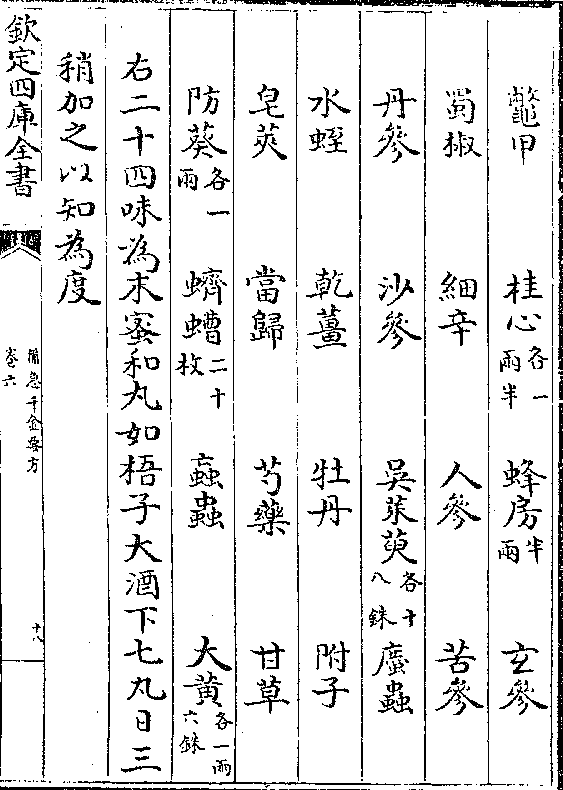 鼈甲　桂心各一兩半　蜂房半兩　玄參
蜀椒　細辛　人參　苦參
丹參　沙參　吳茱萸各十八銖　䗪蟲
水蛭　乾薑　牡丹　附子
皂莢　當歸　芍藥　甘草
防葵各一兩　蠐螬二十枚　蝱蟲　大黃各一兩六銖
右二十四味為末蜜和丸如梧子大酒下七丸日三
稍加之以知為度
欽定四庫全書　備急千金要方卷六　十八